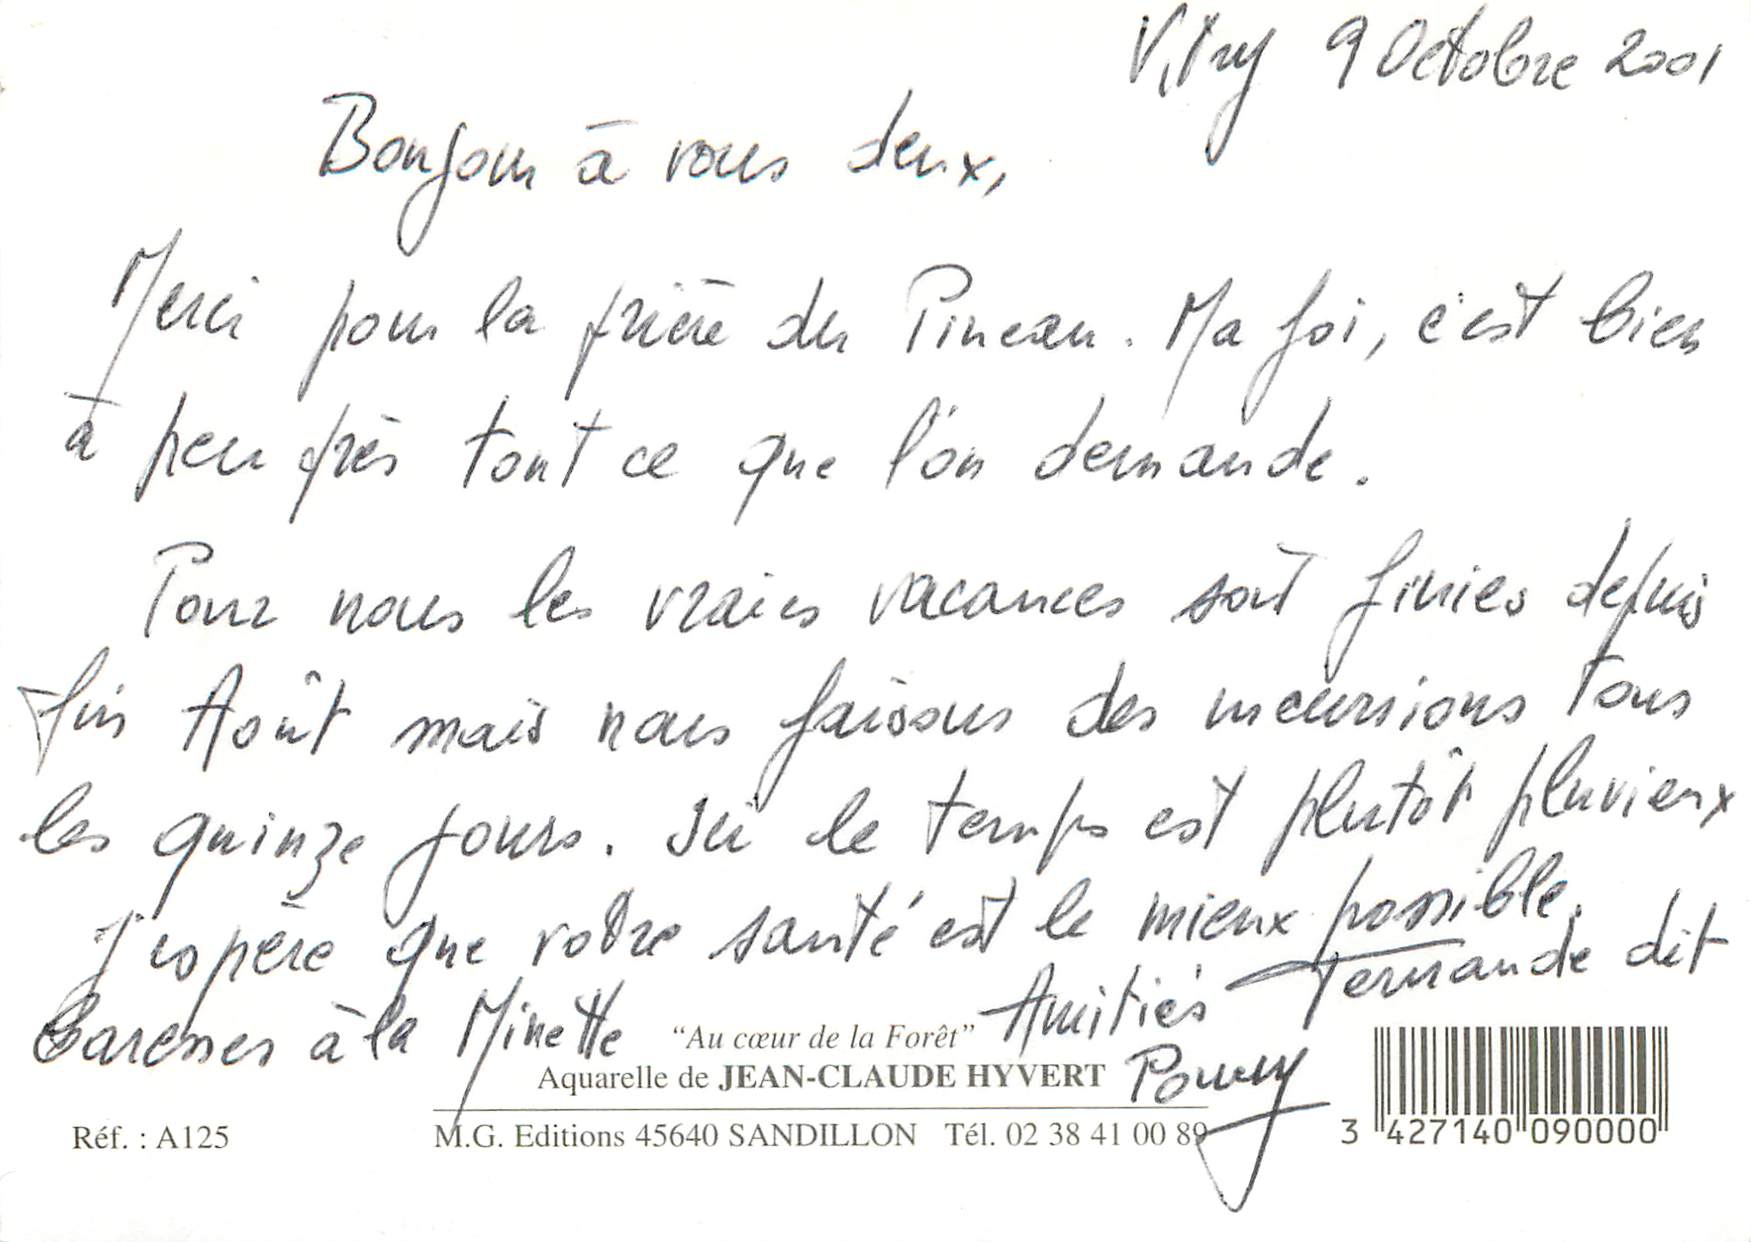 Vitry 9 Octobre 2001
Bonjour à vous deux,
Merci pour la prière du Pineau. Ma foi, c'est bien
à peu près tout ce que l'on demande.
Pour nous les vraies vacances sont finies depuis
fin Août mais nous faisons des incursions tous
les quinze jours. Ici le temps est plutôt pluvieux
J'espère que votre santé est le mieux possible.
Caresses à la Minette
Amitiés Fernande dit
"Au cœur de la Forêt"
Aquarelle de JEAN-CLAUDE HYVERT
Réf. : A125
M.G. Editions 45640 SANDILLON Tél. 02 38 41 00 89
3 427140 090000